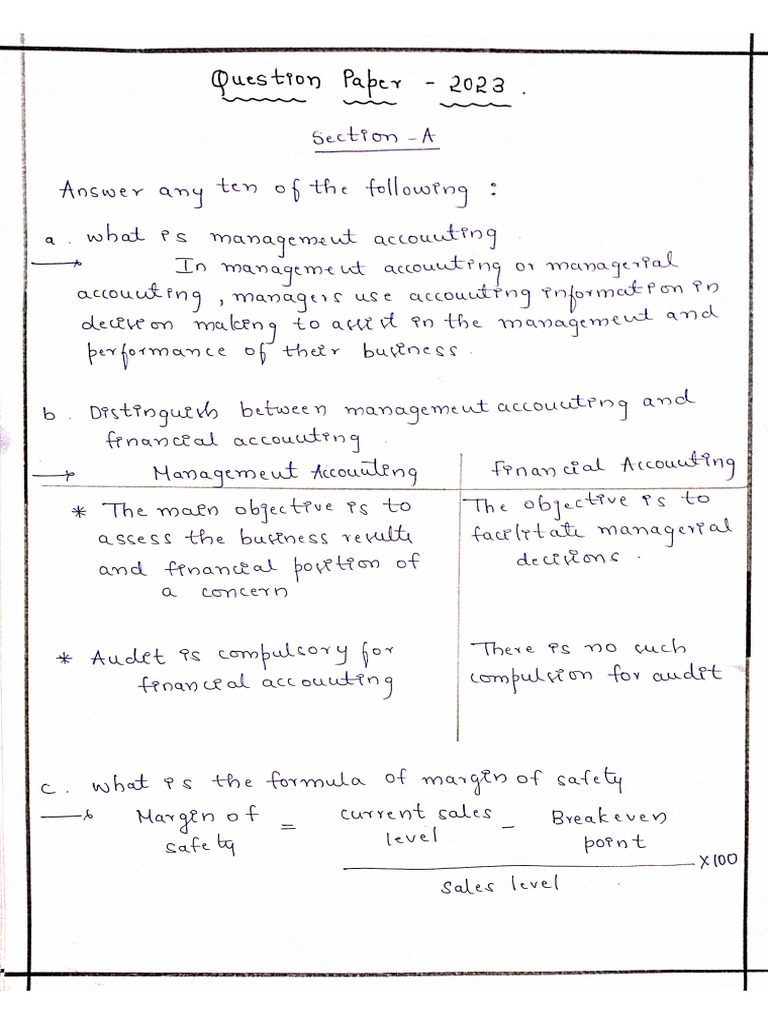 Question Paper - 2023.
Section - A
Answer any ten of the following :
a. What is management accounting
In management accounting or managerial
accounting, managers use accounting information in
decision making to assist in the management and
performance of their business.
b. Distinguish between management accounting and
financial accounting.
Management Accounting
* The main objective is to
assess the business results
and financial position of
a concern
* Audit is compulsory for
financial accounting
Financial Accounting
The objective is to
facilitate managerial
decisions.
There is no such
compulsion for audit
c. What is the formula of margin of safety
Margin of
safety
=
current sales
level
-
Breakeven
point
sales level
x100